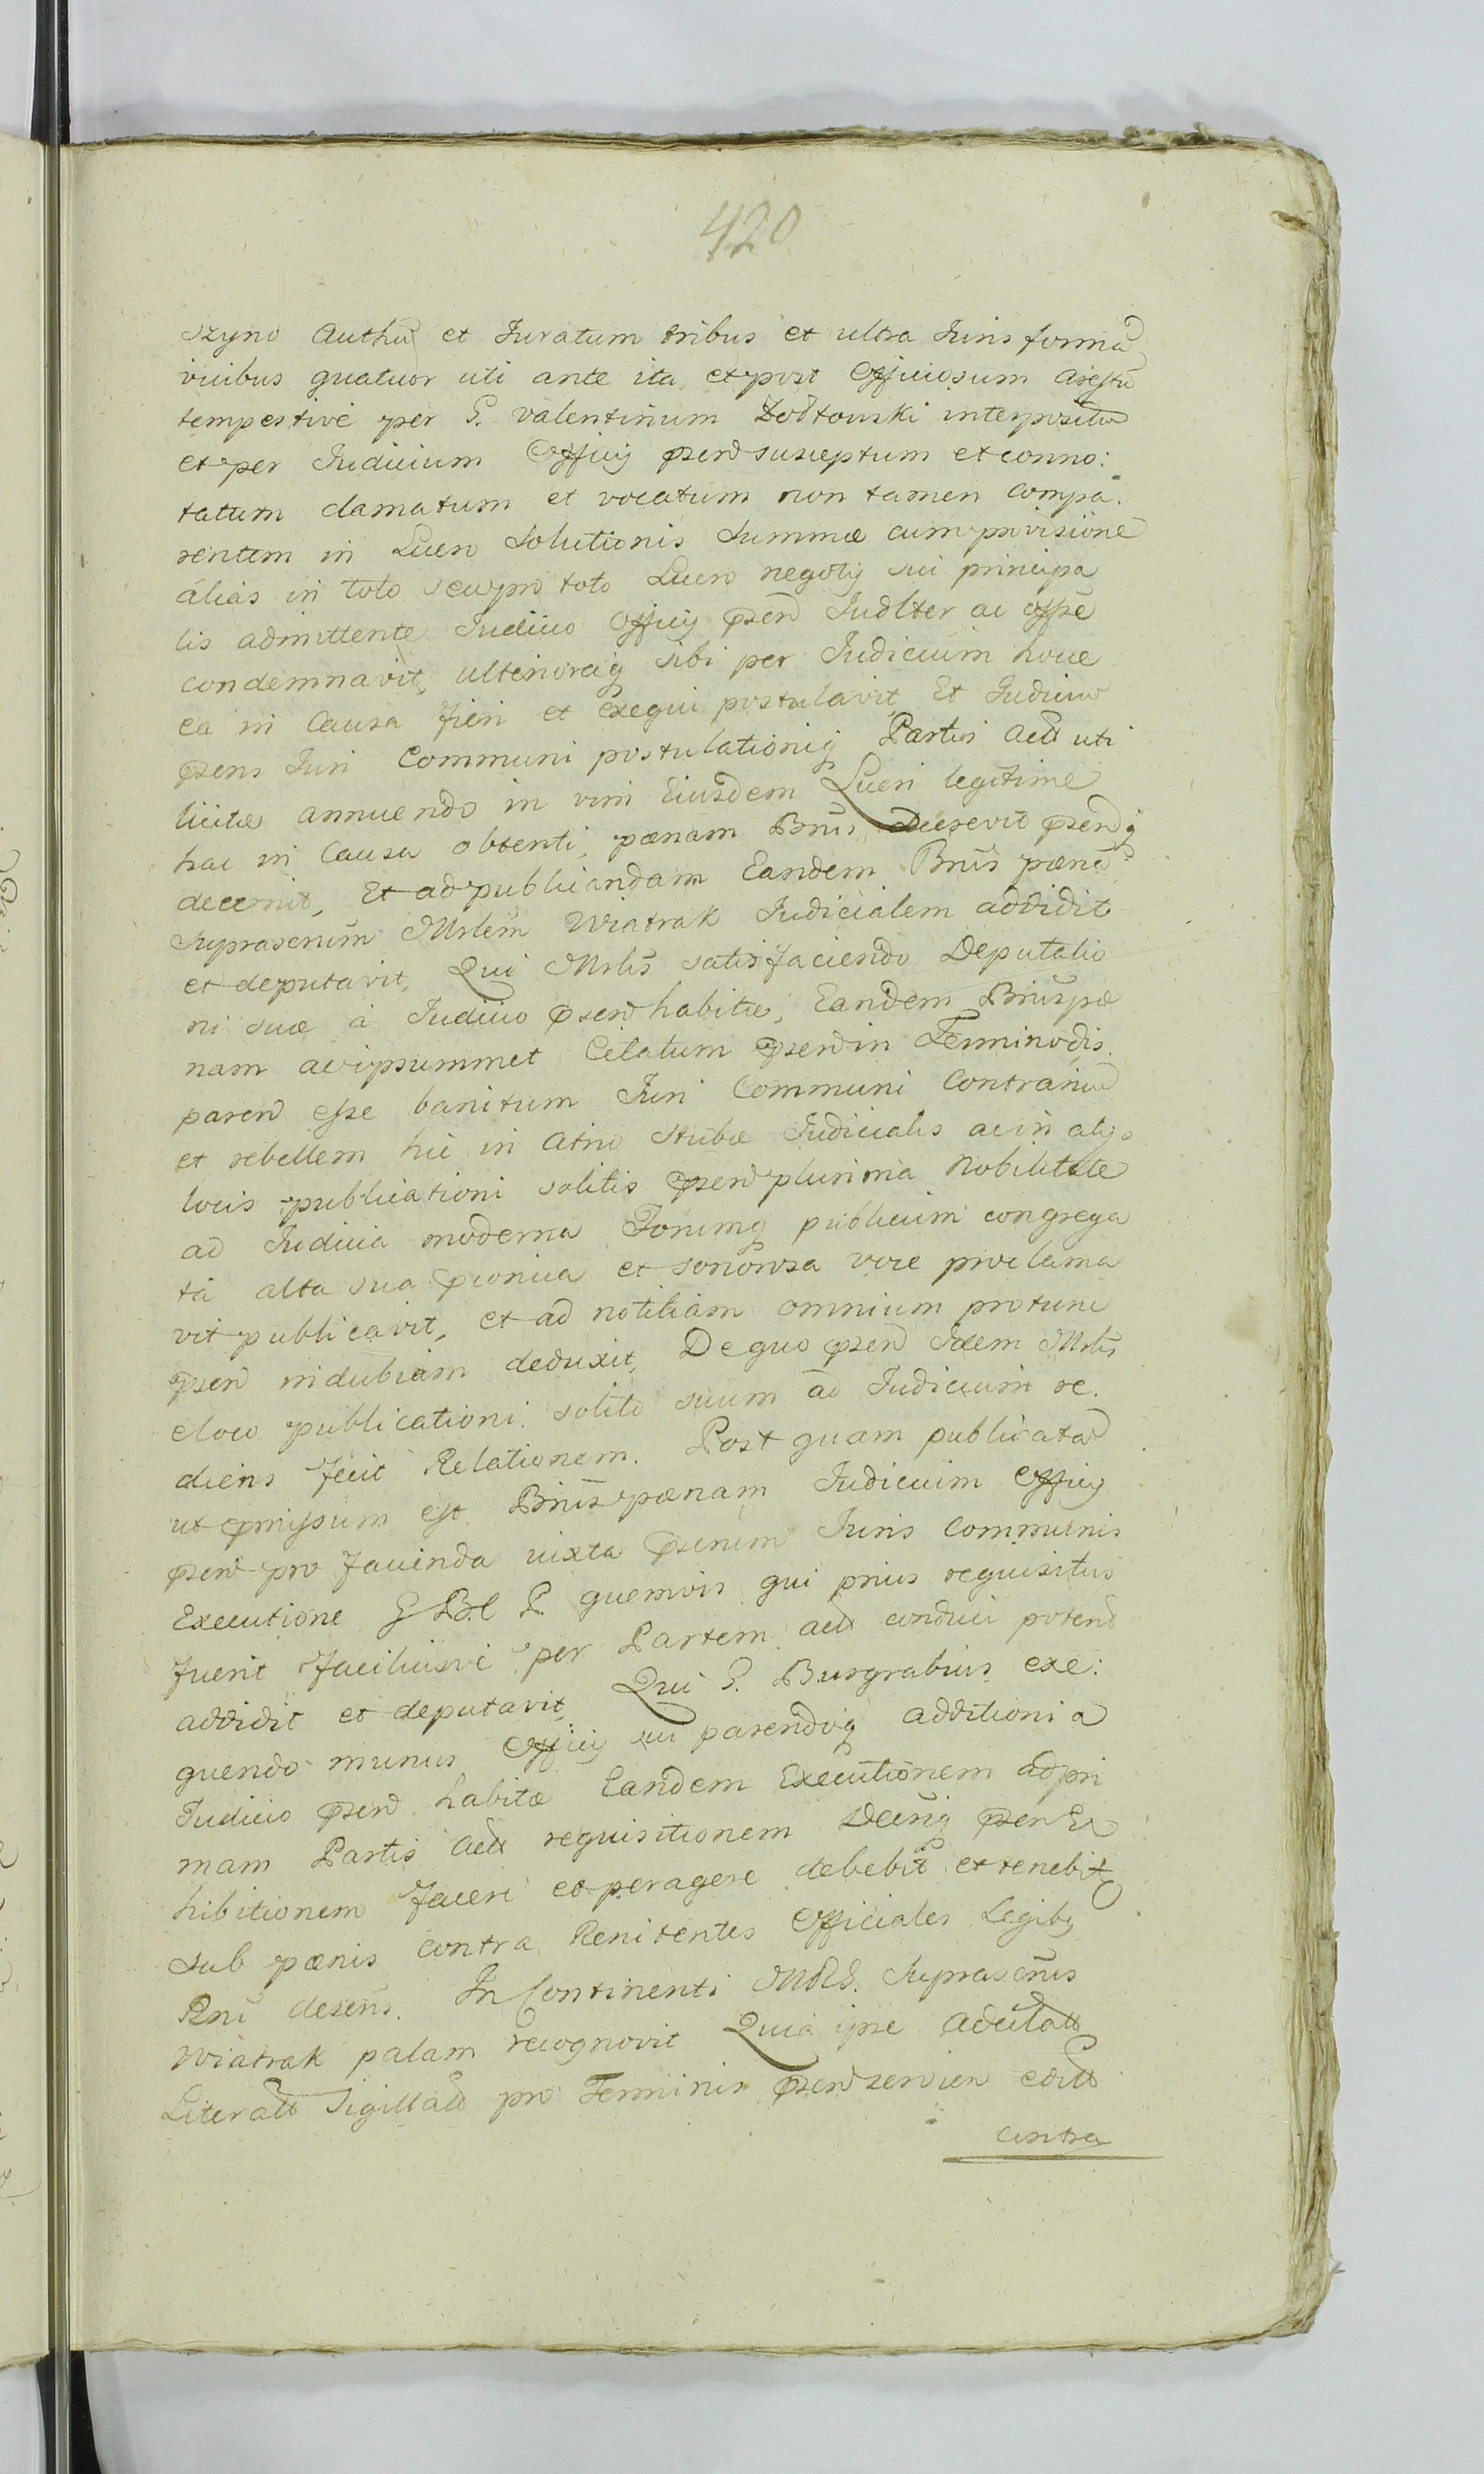 420
szyno Authū et Juratum tribus et ultra Juris forma
vicibus quatuor uti ante ita et post Officiosum Arestū
tempestive per G. Valentinum Żołtowski interpositū
et per Judicium Officij pzend susceptum et conno:
tatum clamatum et vocatum non tamen compa:
rentem in Lucro Solutionis Summæ cum provisione
alias in toto seu pro toto Lucro negotij sui principa
lis admittente Judicio Officij pzend Judlter ac offse
condemnavit, ulterioraq sibi per Judicium hocce
ea in Causa fieri et exequi postulavit Et Judicium
pzens Juri Communi postulationiq Partis Actt uti
licitæ annuendo in vim Eiusdem Lucri legitime
hac in Causa obtenti, pænam Bnis Decrevit pzendq
decernit, Et ad publicandam Eandem Bnis pænā
suprascrum Mrlem Wiatrak Judicialem addidit
et deputavit, Qui Mrlis satisfaciendo Deputatio
ni suæ a Judicio pzend habitæ, Eandem Bnis pæ
nam ac ipsummet Citatum pzend in Termino dis
parend esse banitum Juri Communi Contrariū
et rebellem hic in Atrio Stubæ Judicialis ac in alijs
locis publicationi solitis pzend plurima Nobilitate
ad Judicia moderna Forumq publicum congrega
ta alta sua pconica et sonorosa voce proclama
vit publicavit, et ad notitiam omnium protunc
pzend indubiam deduxit, De quo pzend idem Mrlis
e loco publicationi solito suum ad Judicium re
diens fecit Relationem. Post quam publicatā
ut pmissum est Bnis pænam Judicium Officij
pzend pro facienda iuxta pscrum Juris Communis
Executione G B.C. P. quemvis qui prius requisitus
fuerit faciliusve per Partem actt conduci potend
addidit et deputavit, Qui G. Burgrabius exe:
quendo munus Officij sui parendoq additioni a
Judicio pzend habitæ Eandem Executionem ad pri
mam Partis actt requisitionem Decriq pzen Ex
hibitionem facere et peragere debebit et tenebit
sub pænis contra Renitentes Officiales Legibq
Rni descris. In Continenti Mrls. suprascrus
Wiatrak palam recognovit Quia ipse
Literatt Sigillatt pro Terminis pzend servien editt
contra